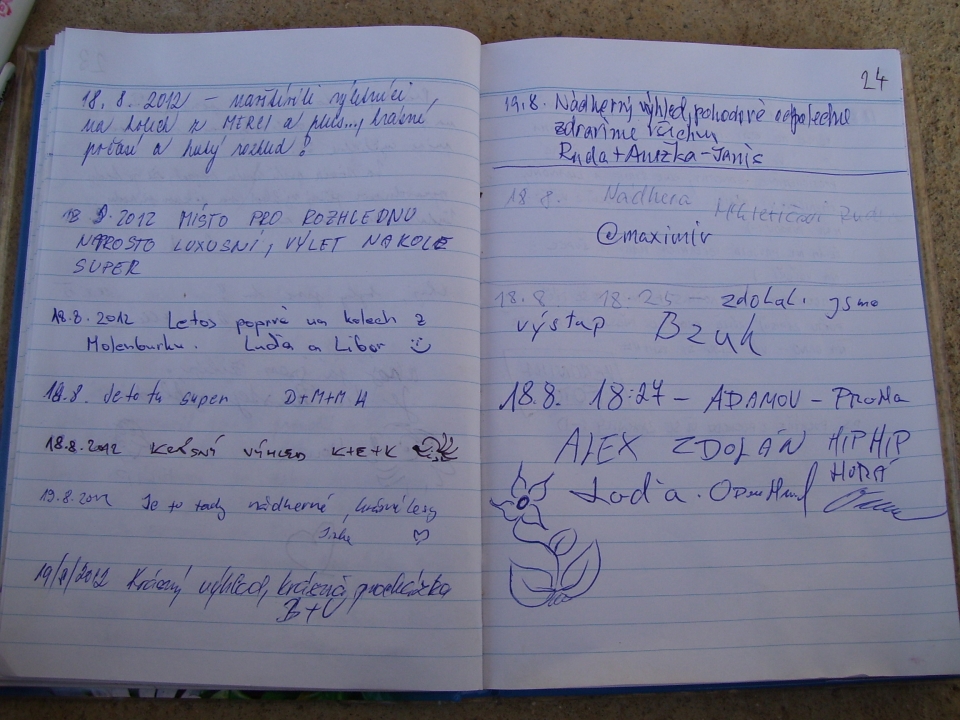 18. 8. 2012 – navštívili výletníci
na kolech z MERCI a plus..., krásné
počasí a hezký rozhled!
18 8. 2012 MÍSTO PRO ROZHLEDNU
NAPROSTO LUXUSNÍ, VÝLET NA KOLE
SUPER
18.8.2012 Letos poprvé na kolech z
Molenburku. Luďa a Libor
18.8. Je to tu super D+M+M
18.8.2012 Krásný výhled K+E+K
19.8.2012 Je to tady nádherné, krásné lesy
19/8/2012 Krásný výhled, krásná procházka
B+V
24
19.8. Nádherný výhled, pohodové odpoledne
zdravíme všechny
Ruda + Anežka - Janis
18 8. Nádhera
@maximiv
18.8 18.25 – zdolali jsme
výstup Bzuk
18.8. 18:27 – ADAMOV – PROMA
ALEX ZDOLÁN HIP HIP
HURÁ
Loďa.